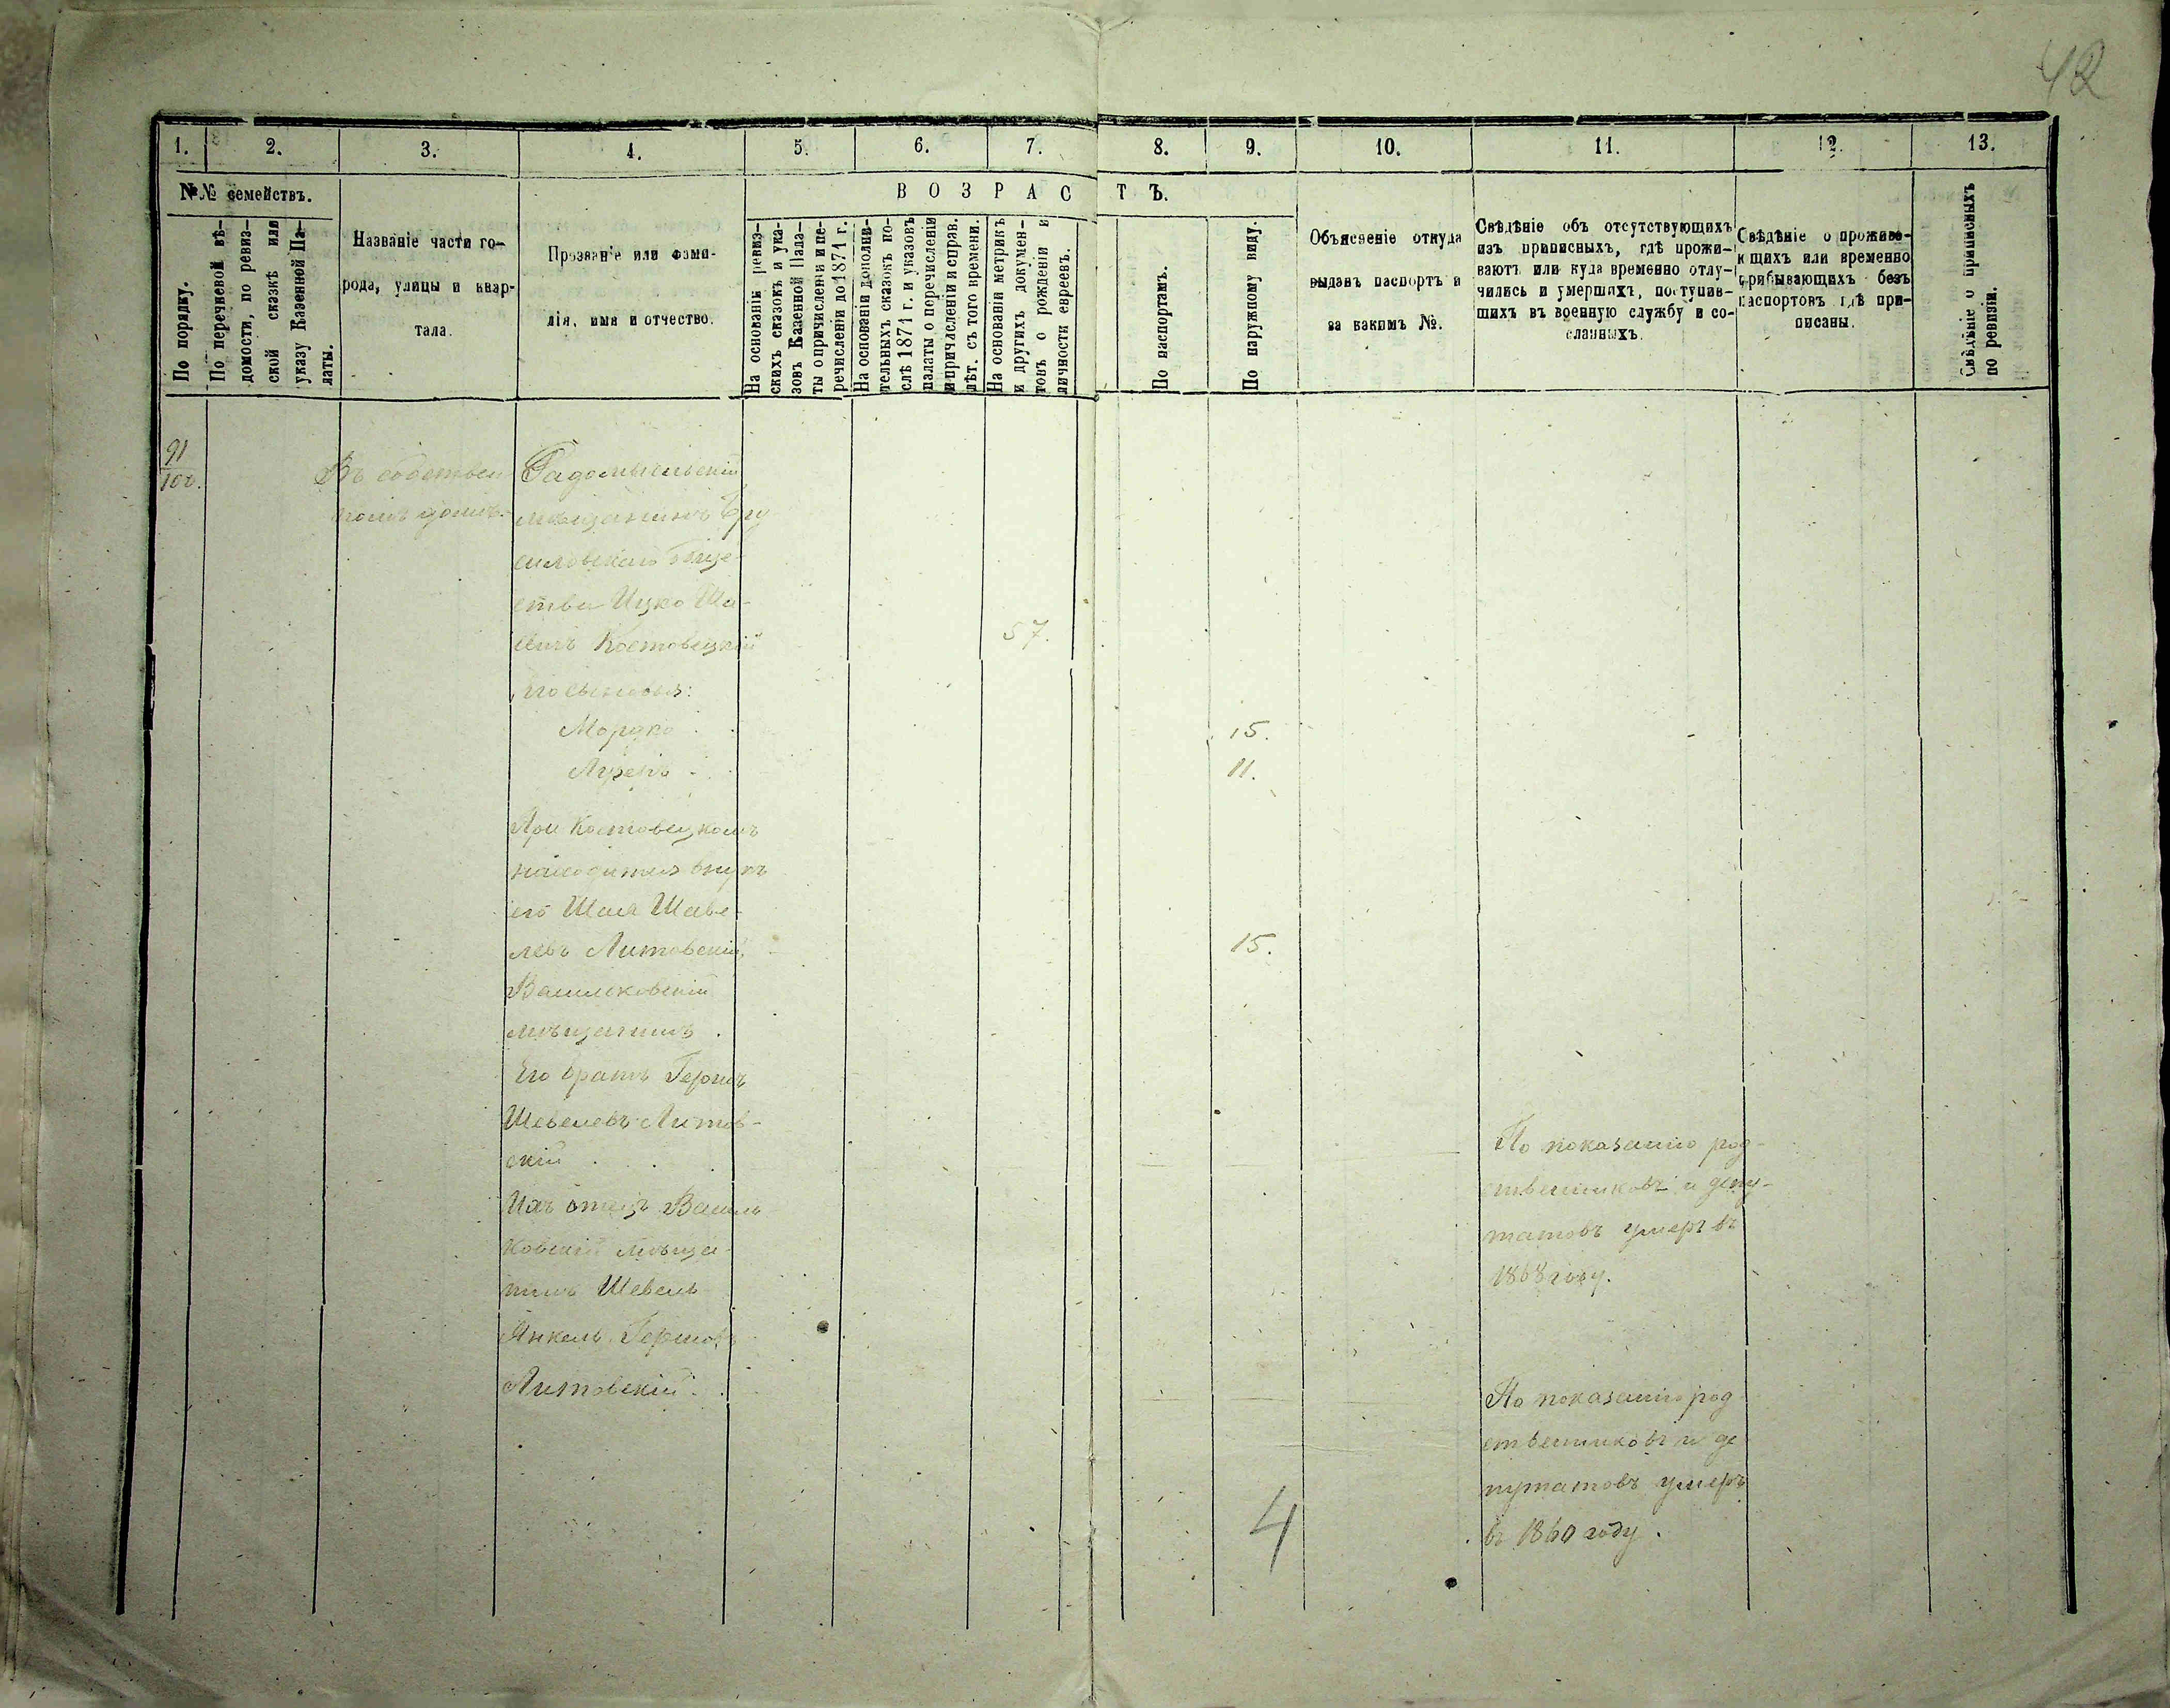 42
1. 2. 3. 4. 5. 6. 7. 8. 9. 10. 11. 12. 13.
№№ семействъ.
ВОЗРАСТЪ.
По порядку.
По перечневой вѣ-
домости, по ревиз-
ской сказкѣ или
указу Казенной Па-
латы.
Названіе части го-
рода, улицы и квар-
тала.
Прозваніе или фами-
лія, имя и отчество.
На основаніи ревиз-
скихъ сказокъ и ука-
зовъ Казенной Пала-
ты о причисленіи и пе-
речисленіи до 1871 г.
На основаніи дополни-
тельныхъ сказокъ по-
слѣ 1871 г. и указовъ
палаты о перечисленіи
и причисленіи и справ.
лѣт. съ того времени.
На основаніи метрикъ
и другихъ докумен-
товъ о рожденіи и
личности евреевъ.
По паспортамъ.
По наружному виду.
Объясненіе откуда
выданъ паспортъ и
за какимъ №.
Свѣдѣніе объ отсутствующихъ
изъ приписныхъ, гдѣ прожи-
ваютъ или куда временно отлу-
чились и умершихъ, поступив-
шихъ въ военную службу и со-
сланныхъ.
Свѣдѣніе о прожива-
ющихъ или временно
прибывающихъ безъ
паспортовъ гдѣ при-
писаны.
Свѣдѣніе о приписныхъ
по ревизіи.
91
100.
Въ собствен
номъ домѣ.
Радомысльскій
мѣщанинъ Бру
силовскаго Обще-
ства Ицко Ша-
евичъ Костовецкій 57.
его сыновья:
Мордко 15.
Лузеръ 11.
При Костовецкомъ
находится внукъ
его Шая Шаве-
левъ Литовскій, 15.
Васильковскій
мѣщанинъ.
Его братъ Гершъ
Шевелевъ Литов-
скій
По показанію род-
ственниковъ и депу-
татовъ умеръ въ
1868 году.
Ихъ отецъ Василь
ковскій мѣща-
нинъ Шевель
Янкель Гершовъ
Литовскій.
По показанію род
ственниковъ и де
путатовъ умеръ
въ 1860 году.
4